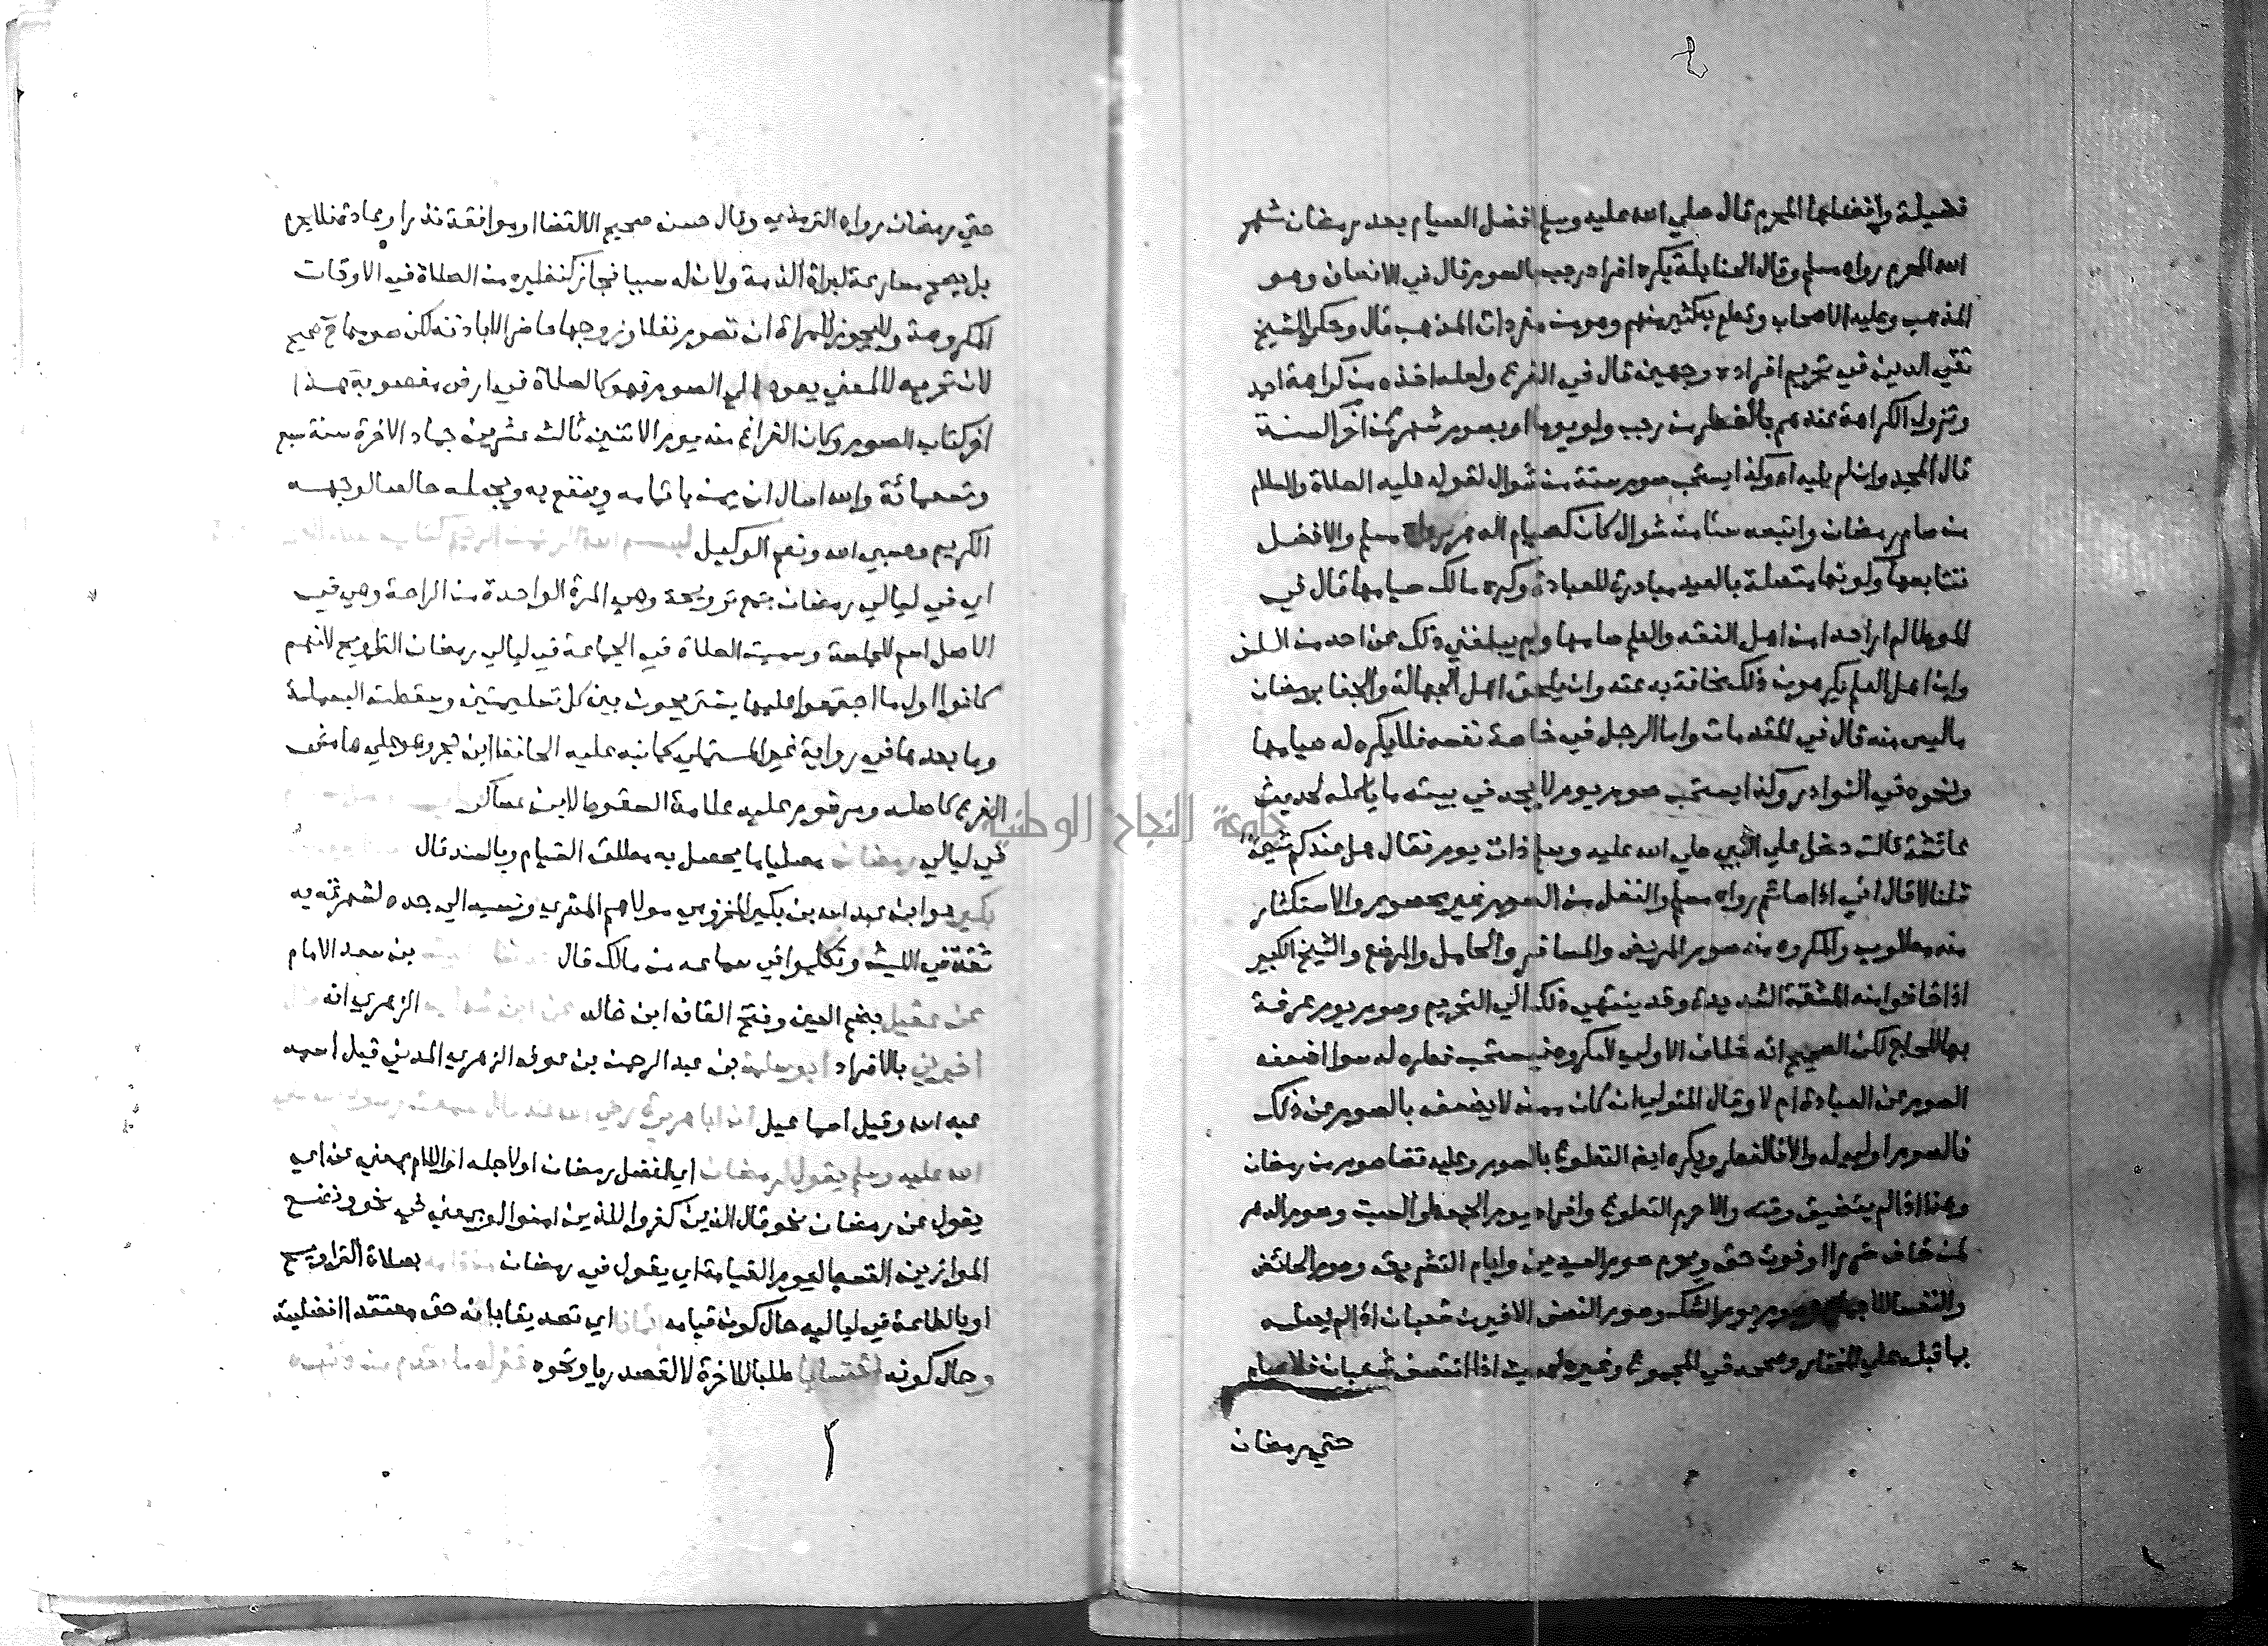 فضيلة وافضلها المحرم قال صلي الله عليه وسلم افضل الصيام بعد رمضان شهر
الله المحرم رواه مسلم وقال الحنابلة يكره افراد رجب بالصوم قال في الانصاف وهو
المذهب وعليه الاصحاب وقطع به كثير منهم وهو من مفردات المذهب قال وحكي الشيخ
تقي الدين في تحريم افراده وجهين قال في الفروع ولعله اخذه من كراهة احمد
وتزول الكراهة عندهم بالفطر من رجب ولو يوما او بصوم شهر من آخر السنة
قال المجد وان لم يليه اه وكذا يستحب صوم ستة من شوال لقوله عليه الصلاة والسلام
من صام رمضان واتبعه ستا من شوال كان كصيام الدهر رواه مسلم والافضل
تتابعها وكونها متصلة بالعيد مبادرة للعبادة وكره مالك صيامها قال في
الموطا لم ار احدا من اهل الفقه والعلم صامها ولم يبلغني ذلك عن احد من السلف
وان اهل العلم يكرهون ذلك مخافة بدعته وان يلحق اهل الجهالة والجفا برمضان
ماليس منه قال في المقدمات واما الرجل في خاصة نفسه فلا يكره له صيامها
ونحوه في النوادر وكذا يستحب صوم يوم لا يجد في بيته ما ياكله لحديث
عائشة قالت دخل علي النبي صلي الله عليه وسلم ذات يوم فقال هل عندكم شي
قلنا لا قال اني اذا صائم رواه مسلم والنفل من الصوم غير محصور والاستكثار
منه مطلوب والمكروه منه صوم المريض والمسافر والحامل والمرضع والشيخ الكبير
اذا خافوا منه المشقة الشديدة وقد ينتهي ذلك الي التحريم وصوم يوم عرفة
بها للحاج لكن الصحيح انه خلاف الاولي لا مكروه فيستحب فطره له سوا اضعفه
الصوم عن العبادة ام لا وقال المتولي ان كان ممن لا يضعفه بالصوم عن ذلك
فالصوم اولي له والا فالفطر ويكره ايضا التطوع بالصوم وعليه قضا صوم من رمضان
وهذا اذا لم يتضيق وقته والا حرم التطوع وافراد يوم الجمعة او السبت وصوم الدهر
لمن خاف ضررا او فوت حق ويحرم صوم العيدين وايام التشريق وصوم الحائض
والنفسا وصوم يوم الشك وصوم النصف الاخير من شعبان اذا لم يصله
بما قبله علي المختار وصححه في المجموع وغيره لحديث اذا انتصف شعبان فلا صيام
حتي رمضان
حتي رمضان رواه الترمذي وقال حسن صحيح الا لقضا او موافقة نذر او عادة فلا يحرم
بل يصح مسارعة لبراة الذمة ولان له سببا فجاز كنظيره من الصلاة في الاوقات
المكروهة ولا يجوز للمراة ان تصوم نفلا وزوجها حاضر الا باذنه لكن صومها صحيح
لان تحريمه لا لمعني يعود الي الصوم فهو كالصلاة في ارض مغصوبة هذا
اخر كتاب الصوم وكان الفراغ منه يوم الاثنين ثالث عشرين جماد الاخرة سنة سبع
وتسعمائة والله اسال ان يمن باتمامه وينفع به ويجعله خالصا لوجهه
الكريم وحسبي الله ونعم الوكيل
اي في ليالي رمضان جمع ترويحة وهي المرة الواحدة من الراحة وهي في
الاصل اسم للجلسة وسميت الصلاة في الجماعة في ليالي رمضان التراويح لانهم
كانوا اول ما اجتمعوا عليها يستريحون بين كل تسليمتين وسقطت البسملة
وما بعدها في رواية غير المستملي كما نبه عليه الحافظ ابن حجر وهو علي هامش
الفرع كاصله ومرقوم عليه علامة السقوط لابن عساكر
في ليالي رمضان مصليا ما يحصل به مطلق القيام وبالسند قال
بكير هو ابن عبد الله بن بكير المخزومي مولاهم المصري ونسبه الي جده لشهرته به
ثقة في الليث وتكلموا في سماعه من مالك قال بن سعد الامام
عن عقيل بضم العين وفتح القاف ابن خالد الزهري انه
اخبرني بالافراد ابو سلمة بن عبد الرحمن بن عوف الزهري المدني قيل اسمه
عبد الله وقيل اسماعيل ان ابا هريرة
الله عليه وسلم يقول لرمضان اي لفضل رمضان او لاجله او اللام بمعني عن اي
يقول عن رمضان نحو قال الذين كفروا للذين امنوا او بمعني في نحو ونضع
الموازين القسط ليوم القيامة اي يقول في رمضان بصلاة التراويح
او بالطاعة في لياليه حال كون قيامه ايمانا اي تصديقا بانه حق معتقدا افضليته
وحال كونه احتسابا طلبا للاخرة لا لقصد ريا ونحوه
جامعة النجاح الوطنية